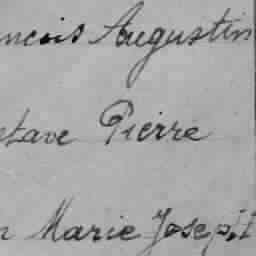 ncois Augustin
stave Pierre
n Marie Joseph